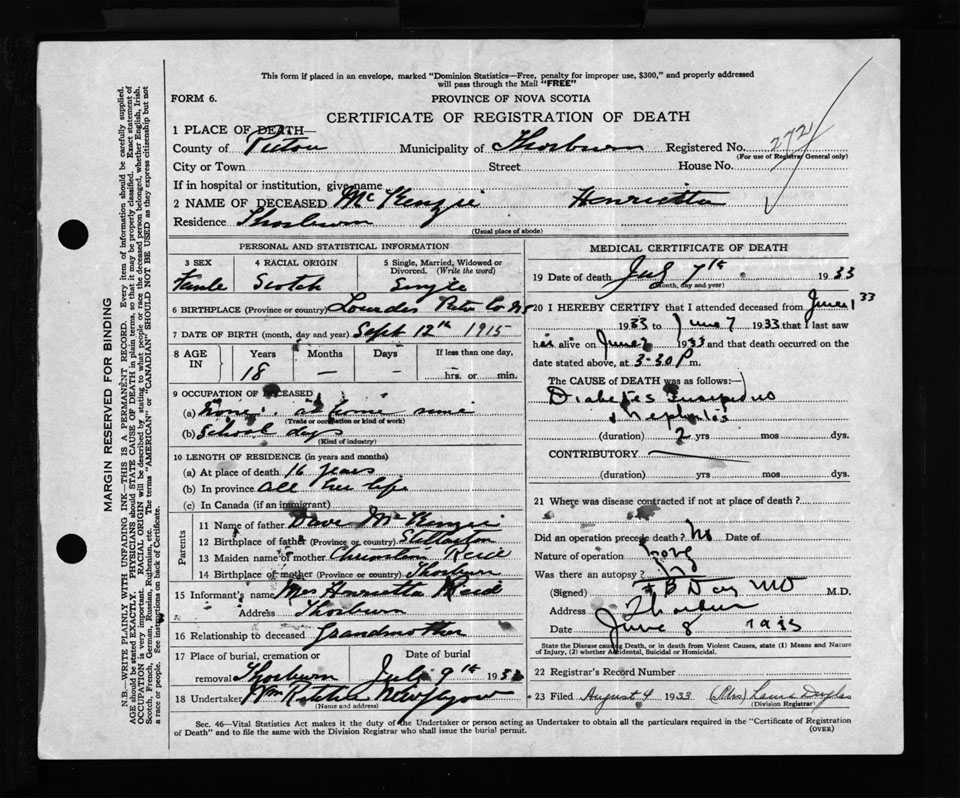 This form if placed in an envelope, marked "Dominion Statistics—Free, penalty for improper use, $300," and properly addressed
will pass through the Mail "FREE"
FORM 6.
PROVINCE OF NOVA SCOTIA
CERTIFICATE OF REGISTRATION OF DEATH
1 PLACE OF DEATH—
County of Pictou Municipality of Thorburn Registered No. 272
(For use of Registrar General only)
City or Town Street House No.
If in hospital or institution, give name
2 NAME OF DECEASED McKenzie Henrietta
Residence Thorburn
(Usual place of abode)
PERSONAL AND STATISTICAL INFORMATION
3 SEX 4 RACIAL ORIGIN 5 Single, Married, Widowed or
Divorced. (Write the word)
Female Scotch Single
6 BIRTHPLACE (Province or country) Lourdes Co NS
7 DATE OF BIRTH (month, day and year) Sept 12th 1915
8 AGE IN Years Months Days If less than one day,
18 — — hrs. or min.
9 OCCUPATION OF DECEASED
(a) None at home
(Trade or occupation or kind of work)
(b) School days
(Kind of industry)
10 LENGTH OF RESIDENCE (in years and months)
(a) At place of death 16 years
(b) In province all her life
(c) In Canada (if an immigrant)
Parents
11 Name of father Dave McKenzie
12 Birthplace of father (Province or country) Stellarton
13 Maiden name of mother Reid
14 Birthplace of mother (Province or country) Thorburn
15 Informant's name Mrs Henrietta Reid
Address Thorburn
16 Relationship to deceased Grandmother
17 Place of burial, cremation or Date of burial
removal Thorburn July 9th 193
18 Undertaker Wm New Glasgow
(Name and address)
MEDICAL CERTIFICATE OF DEATH
19 Date of death July 7th 1933
(Month, day and year)
20 I HEREBY CERTIFY that I attended deceased from June 1 33
1933 to June 7 1933 that I last saw
her alive on June 1933 and that death occurred on the
date stated above, at 3-30 P m.
The CAUSE OF DEATH was as follows:
Diabetes Insipidus
& Nephritis
(duration) 2 yrs mos dys.
CONTRIBUTORY
(duration) yrs. mos. dys.
21 Where was disease contracted if not at place of death?
Did an operation precede death? No Date of
Nature of operation
Was there an autopsy? No
(Signed) B Day MD M.D.
Address Thorburn
Date June 8 1933
State the Disease causing Death, or in death from Violent Causes, state (1) Means and Nature
of Injury, (2) whether Accidental, Suicidal or Homicidal.
22 Registrar's Record Number
23 Filed August 4 1933 (Mrs) Laura Douglas
(Division Registrar)
Sec. 46—Vital Statistics Act makes it the duty of the Undertaker or person acting as Undertaker to obtain all the particulars required in the "Certificate of Registration
of Death" and to file the same with the Division Registrar who shall issue the burial permit.
(OVER)
MARGIN RESERVED FOR BINDING
N.B.—WRITE PLAINLY WITH UNFADING INK—THIS IS A PERMANENT RECORD. Every item of information should be carefully supplied.
AGE should be stated EXACTLY. PHYSICIANS should STATE CAUSE OF DEATH in plain terms, so that it may be properly classified. Exact statement of
OCCUPATION is very important. RACIAL ORIGIN will be described by stating to what people or race the deceased person belonged, whether English, Irish,
Scotch, French, German, Russian, Ruthenian, etc. The terms "AMERICAN" or "CANADIAN" SHOULD NOT BE USED as they express citizenship but not
a race or people. See instructions on back of Certificate.